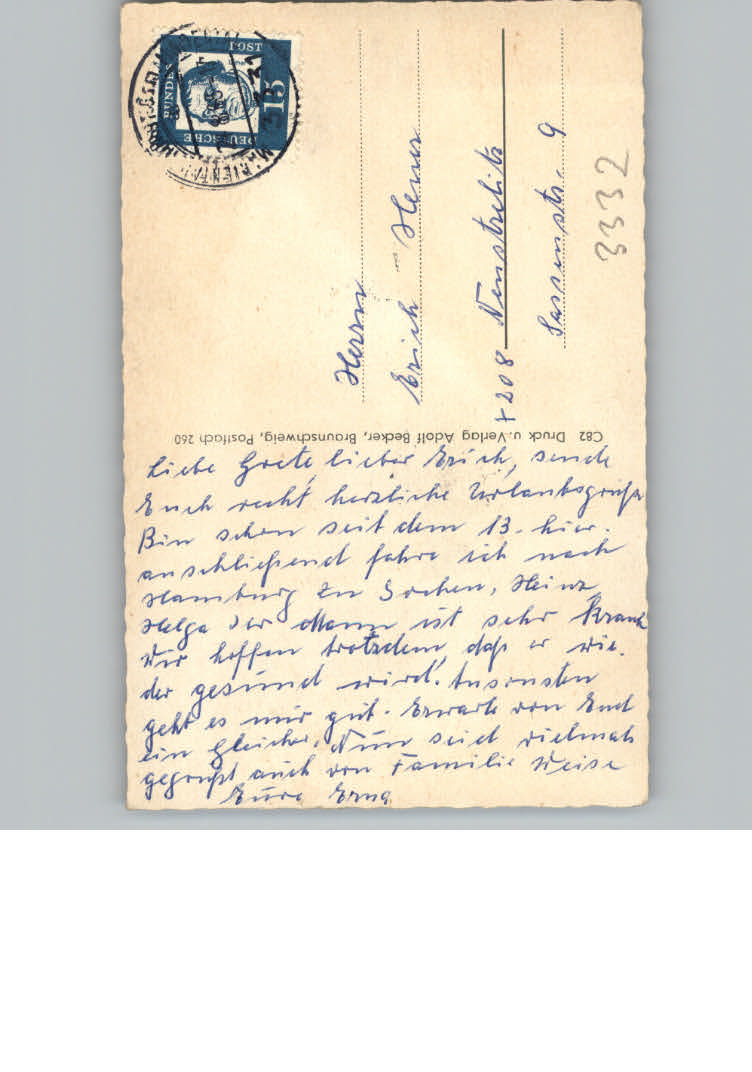 Liebe Grete, lieber Erich, sende
Euch recht herzliche Urlaubsgrüße
Bin schon seit dem 13. hier.
anschließend fahre ich nach
Hamburg zu Heinz,
Helga der Mann ist sehr krank
Wir hoffen trotzdem, daß er wie-
der gesund wird. Ansonsten
geht es mir gut. Erwarte von Euch
ein gleiches. Nun seid vielmals
gegrüßt auch von Familie Weise
Eure Erna
C82 Druck u. Verlag Adolf Becker, Braunschweig, Postfach 260
Herrn
Erich
x 208 Neustrelitz
Sassenstr. 9
3332
DEUTSCHE
BUNDESPOST
15